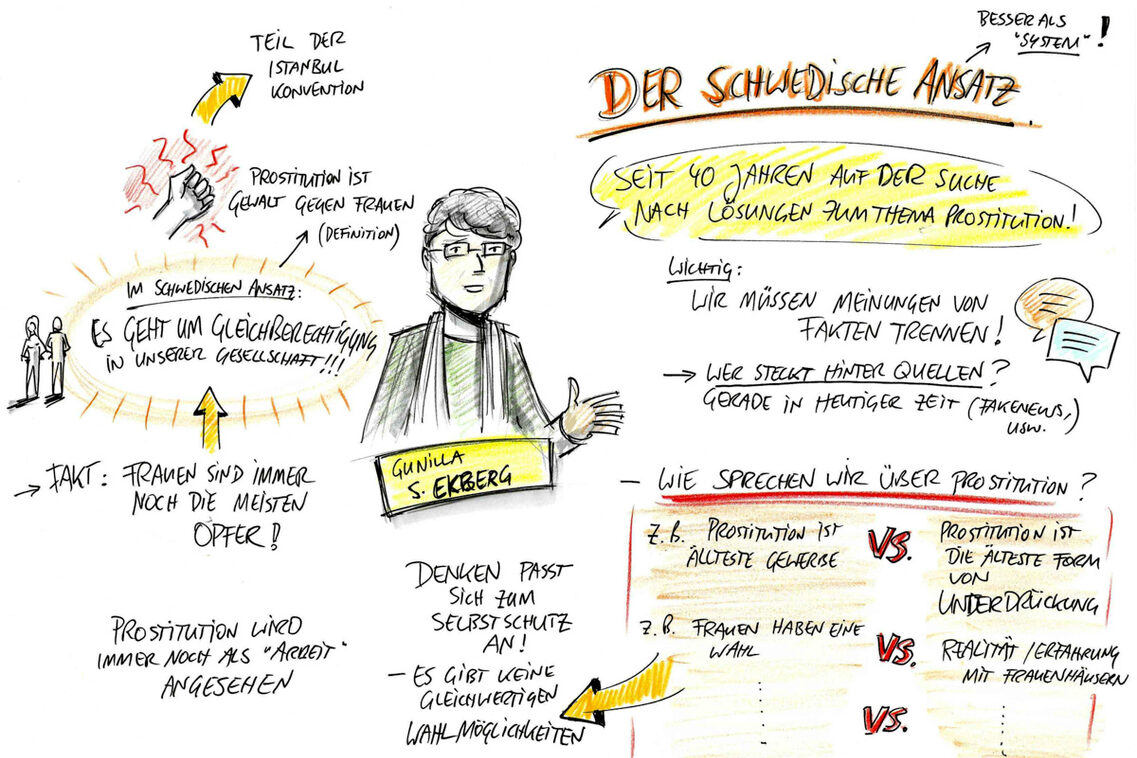 BESSER ALS
"SYSTEM"!
DER SCHWEDISCHE ANSATZ
SEIT 40 JAHREN AUF DER SUCHE
NACH LÖSUNGEN ZUM THEMA PROSTITUTION!
WICHTIG:
WIR MÜSSEN MEINUNGEN VON
FAKTEN TRENNEN!
→ WER STECKT HINTER QUELLEN?
GERADE IN HEUTIGER ZEIT (FAKENEWS,
USW.)
– WIE SPRECHEN WIR ÜBER PROSTITUTION?
Z.B. PROSTITUTION IST
ÄLLTESTE GEWERBE
VS.
PROSTITUTION IST
DIE ÄLTESTE FORM
VON
UNTERDRÜCKUNG
Z.B. FRAUEN HABEN EINE
WAHL
VS.
REALITÄT/ERFAHRUNG
MIT FRAUENHÄUSERN
VS.
TEIL DER
ISTANBUL
KONVENTION
PROSTITUTION IST
GEWALT GEGEN FRAUEN
(DEFINITION)
IM SCHWEDISCHEN ANSATZ:
ES GEHT UM GLEICHBERECHTIGUNG
IN UNSERER GESELLSCHAFT!!!
→ FAKT: FRAUEN SIND IMMER
NOCH DIE MEISTEN
OPFER!
GUNILLA
S. EKBERG
PROSTITUTION WIRD
IMMER NOCH ALS "ARBEIT"
ANGESEHEN
DENKEN PASST
SICH ZUM
SELBSTSCHUTZ
AN!
– ES GIBT KEINE
GLEICHWERTIGEN
WAHLMÖGLICHKEITEN